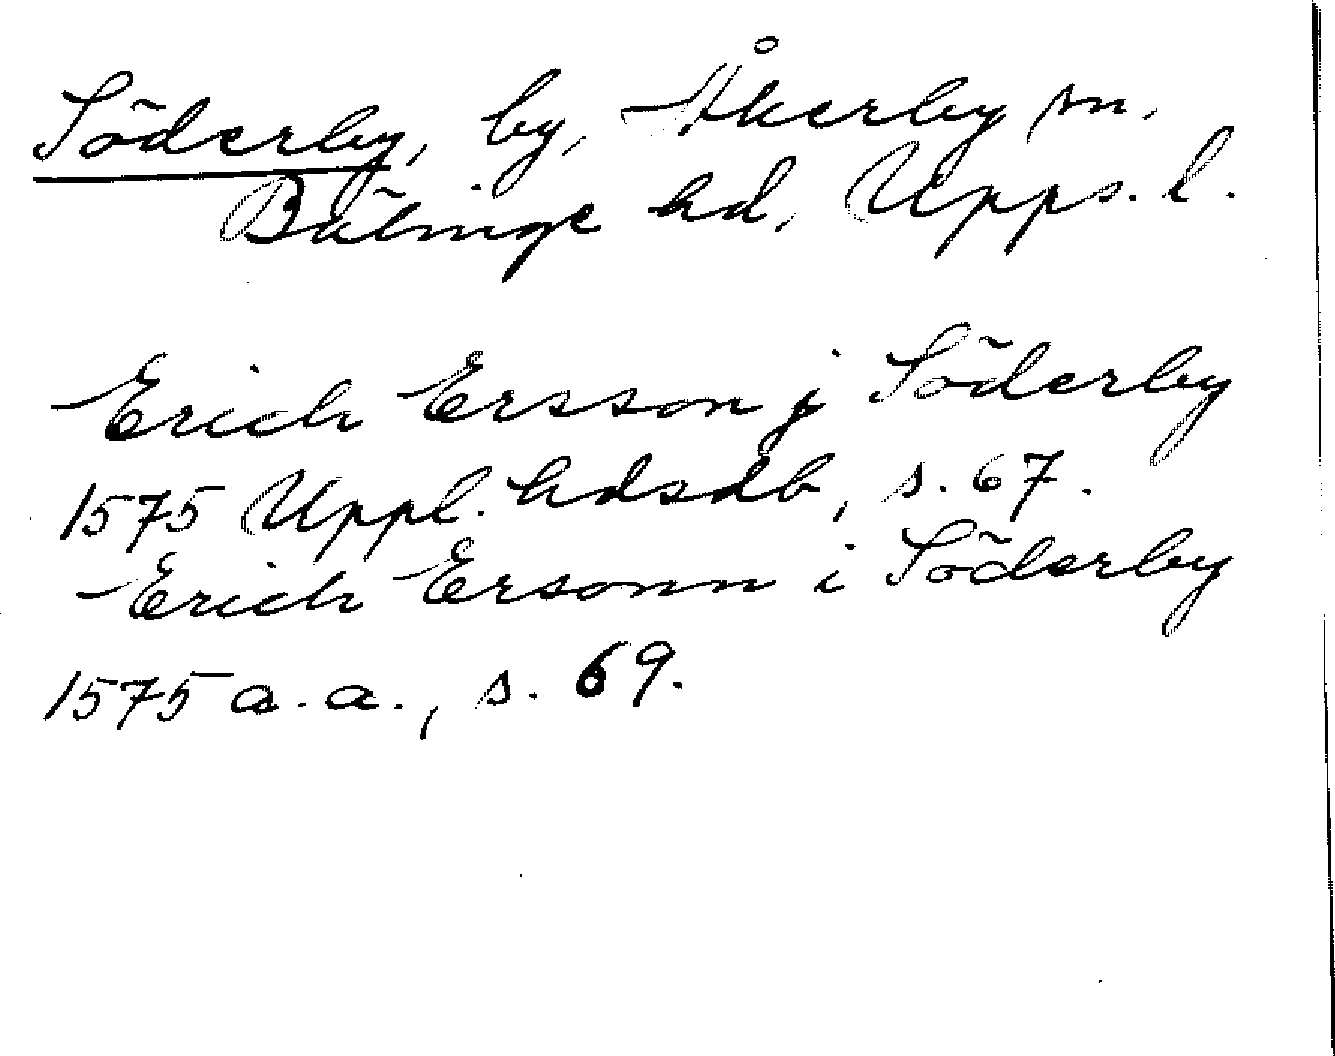 Söderby, by, Åkerby sn.
Bälinge hd, Upps. l.
Erich Ersson j Söderby
1575 Uppl. hdsdb, s. 67.
Erich Ersonn i Söderby
1575 a. a., s. 69.